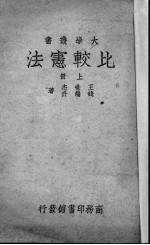 大學叢書
比較憲法
上冊
王世杰
錢端升
著
商務印書館發行